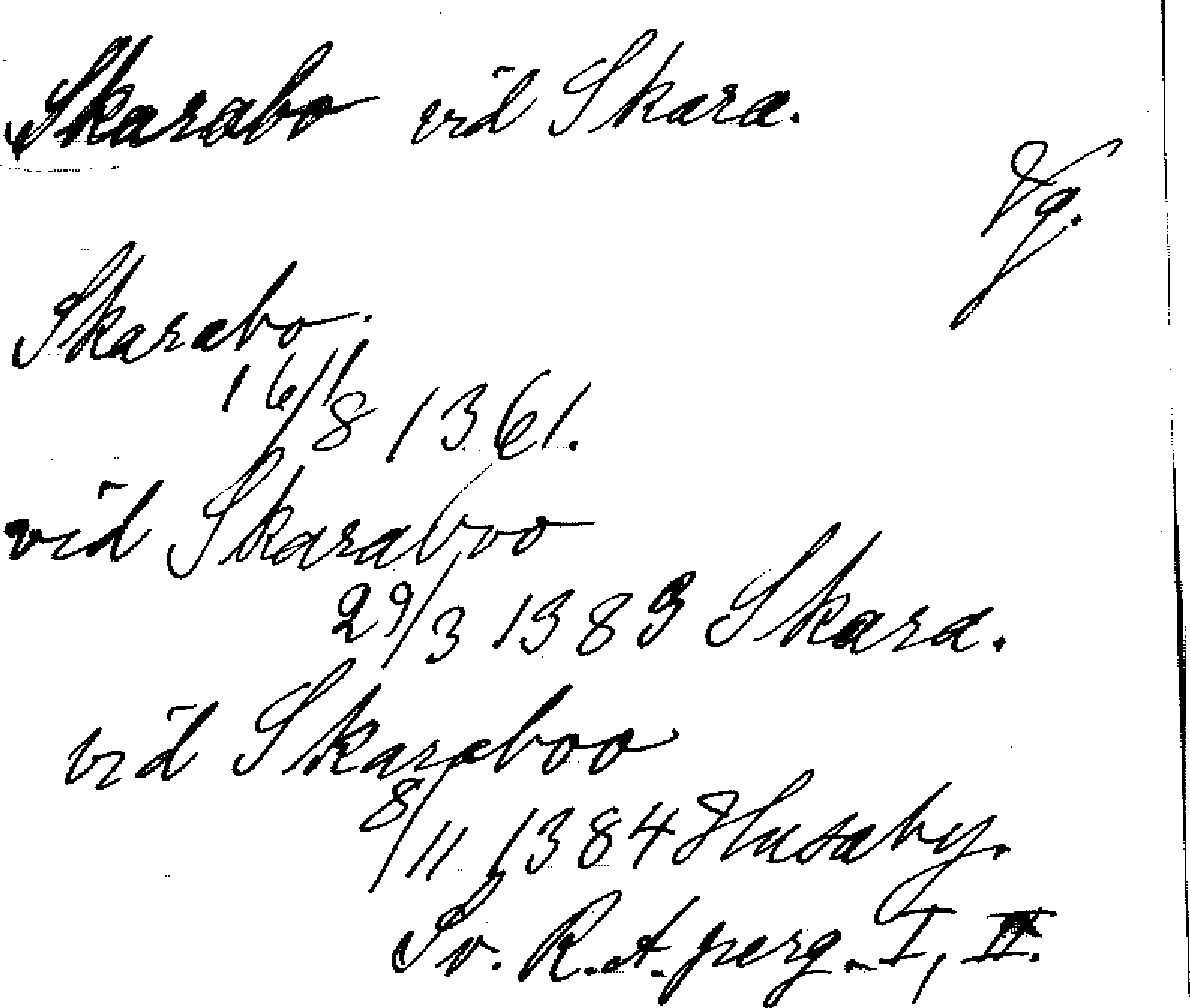 Skarabo vid Skara.
Vg.
Skarabo.
16/8 1361.
vid Skaraboo
29/3 1383 Skara.
vid Skaraboo
8/11 1384 Husaby.
Sv. R. A. perg. I, II.